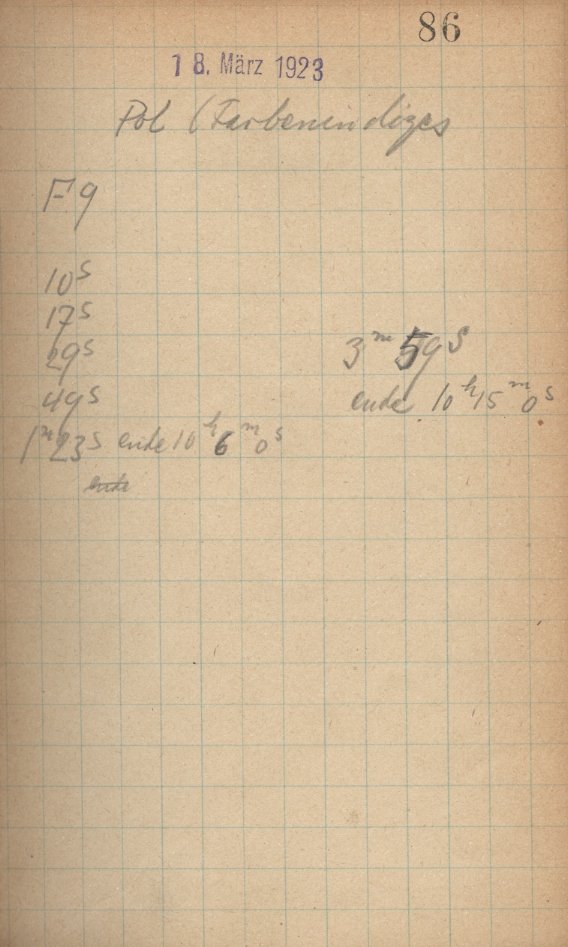 86
18. März 1923
Pol (Farbenindizes
F9
10s
17s
29s
49s
1m23s ende 10h 6m 0s
ende
3m 59s
ende 10h 15m 0s